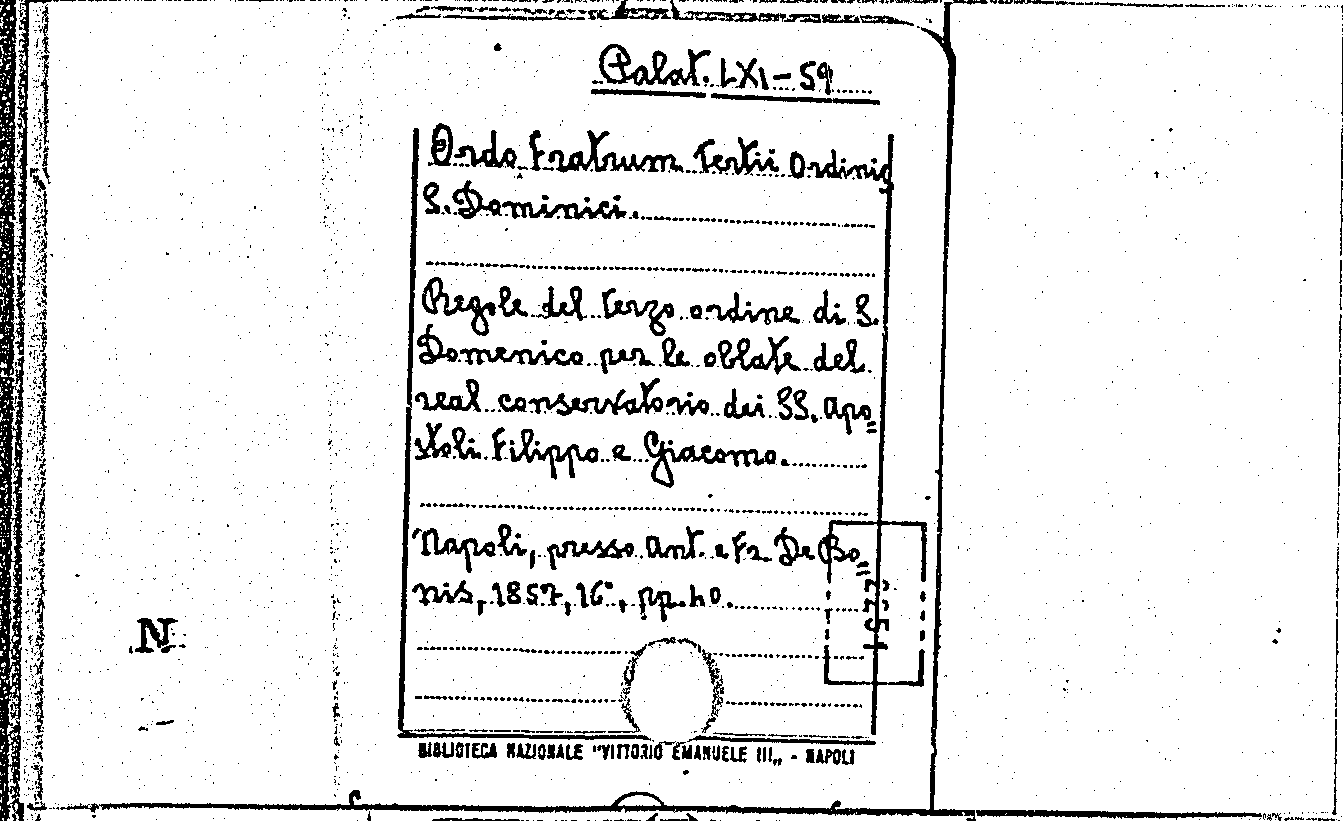 Palat. LXI-59
Ordo Fratrum Tertii Ordinis
S. Dominici.
Regole del terzo ordine di S.
Domenico per le oblate del
real conservatorio dei SS. Apo=
stoli Filippo e Giacomo.
Napoli, presso Ant. e Fr. De Bo=
nis, 1857, 16°, pp. 40.
N
BIBLIOTECA NAZIONALE "VITTORIO EMANUELE III„ - NAPOLI